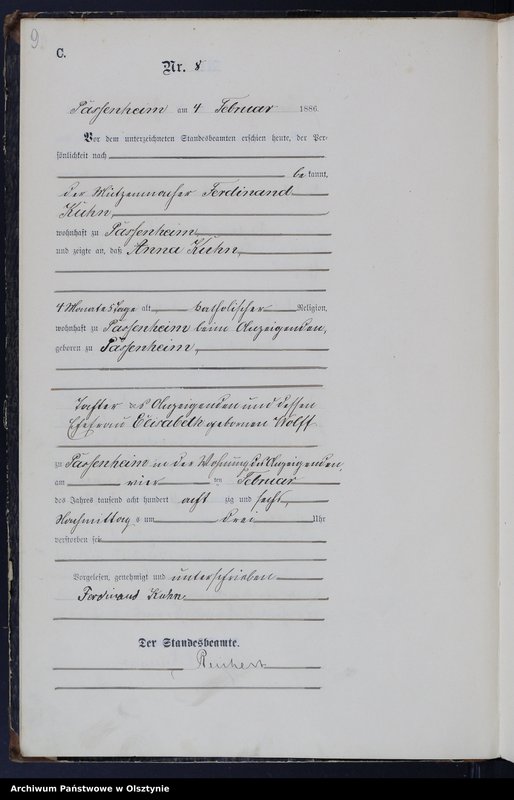 9
C.
Nr. 8
Passenheim am 4 Februar 1886.
Vor dem unterzeichneten Standesbeamten erschien heute, der Per-
sönlichkeit nach
be kannt,
der Mützenmacher Ferdinand
Kuhn,
wohnhaft zu Passenheim,
und zeigte an, daß Anna Kuhn,
4 Monate 5 Tage alt, katholischer Religion,
wohnhaft zu Passenheim beim Anzeigenden,
geboren zu Passenheim,
Tochter des Anzeigenden und dessen
Ehefrau Elisabeth gebornen Wolff
zu Passenheim in der Wohnung des Anzeigenden,
am vier ten Februar
des Jahres tausend acht hundert acht zig und sechs,
Nachmittag s um drei Uhr
verstorben sei.
Vorgelesen, genehmigt und unterschrieben
Ferdinand Kuhn,
Der Standesbeamte.
Archiwum Państwowe w Olsztynie